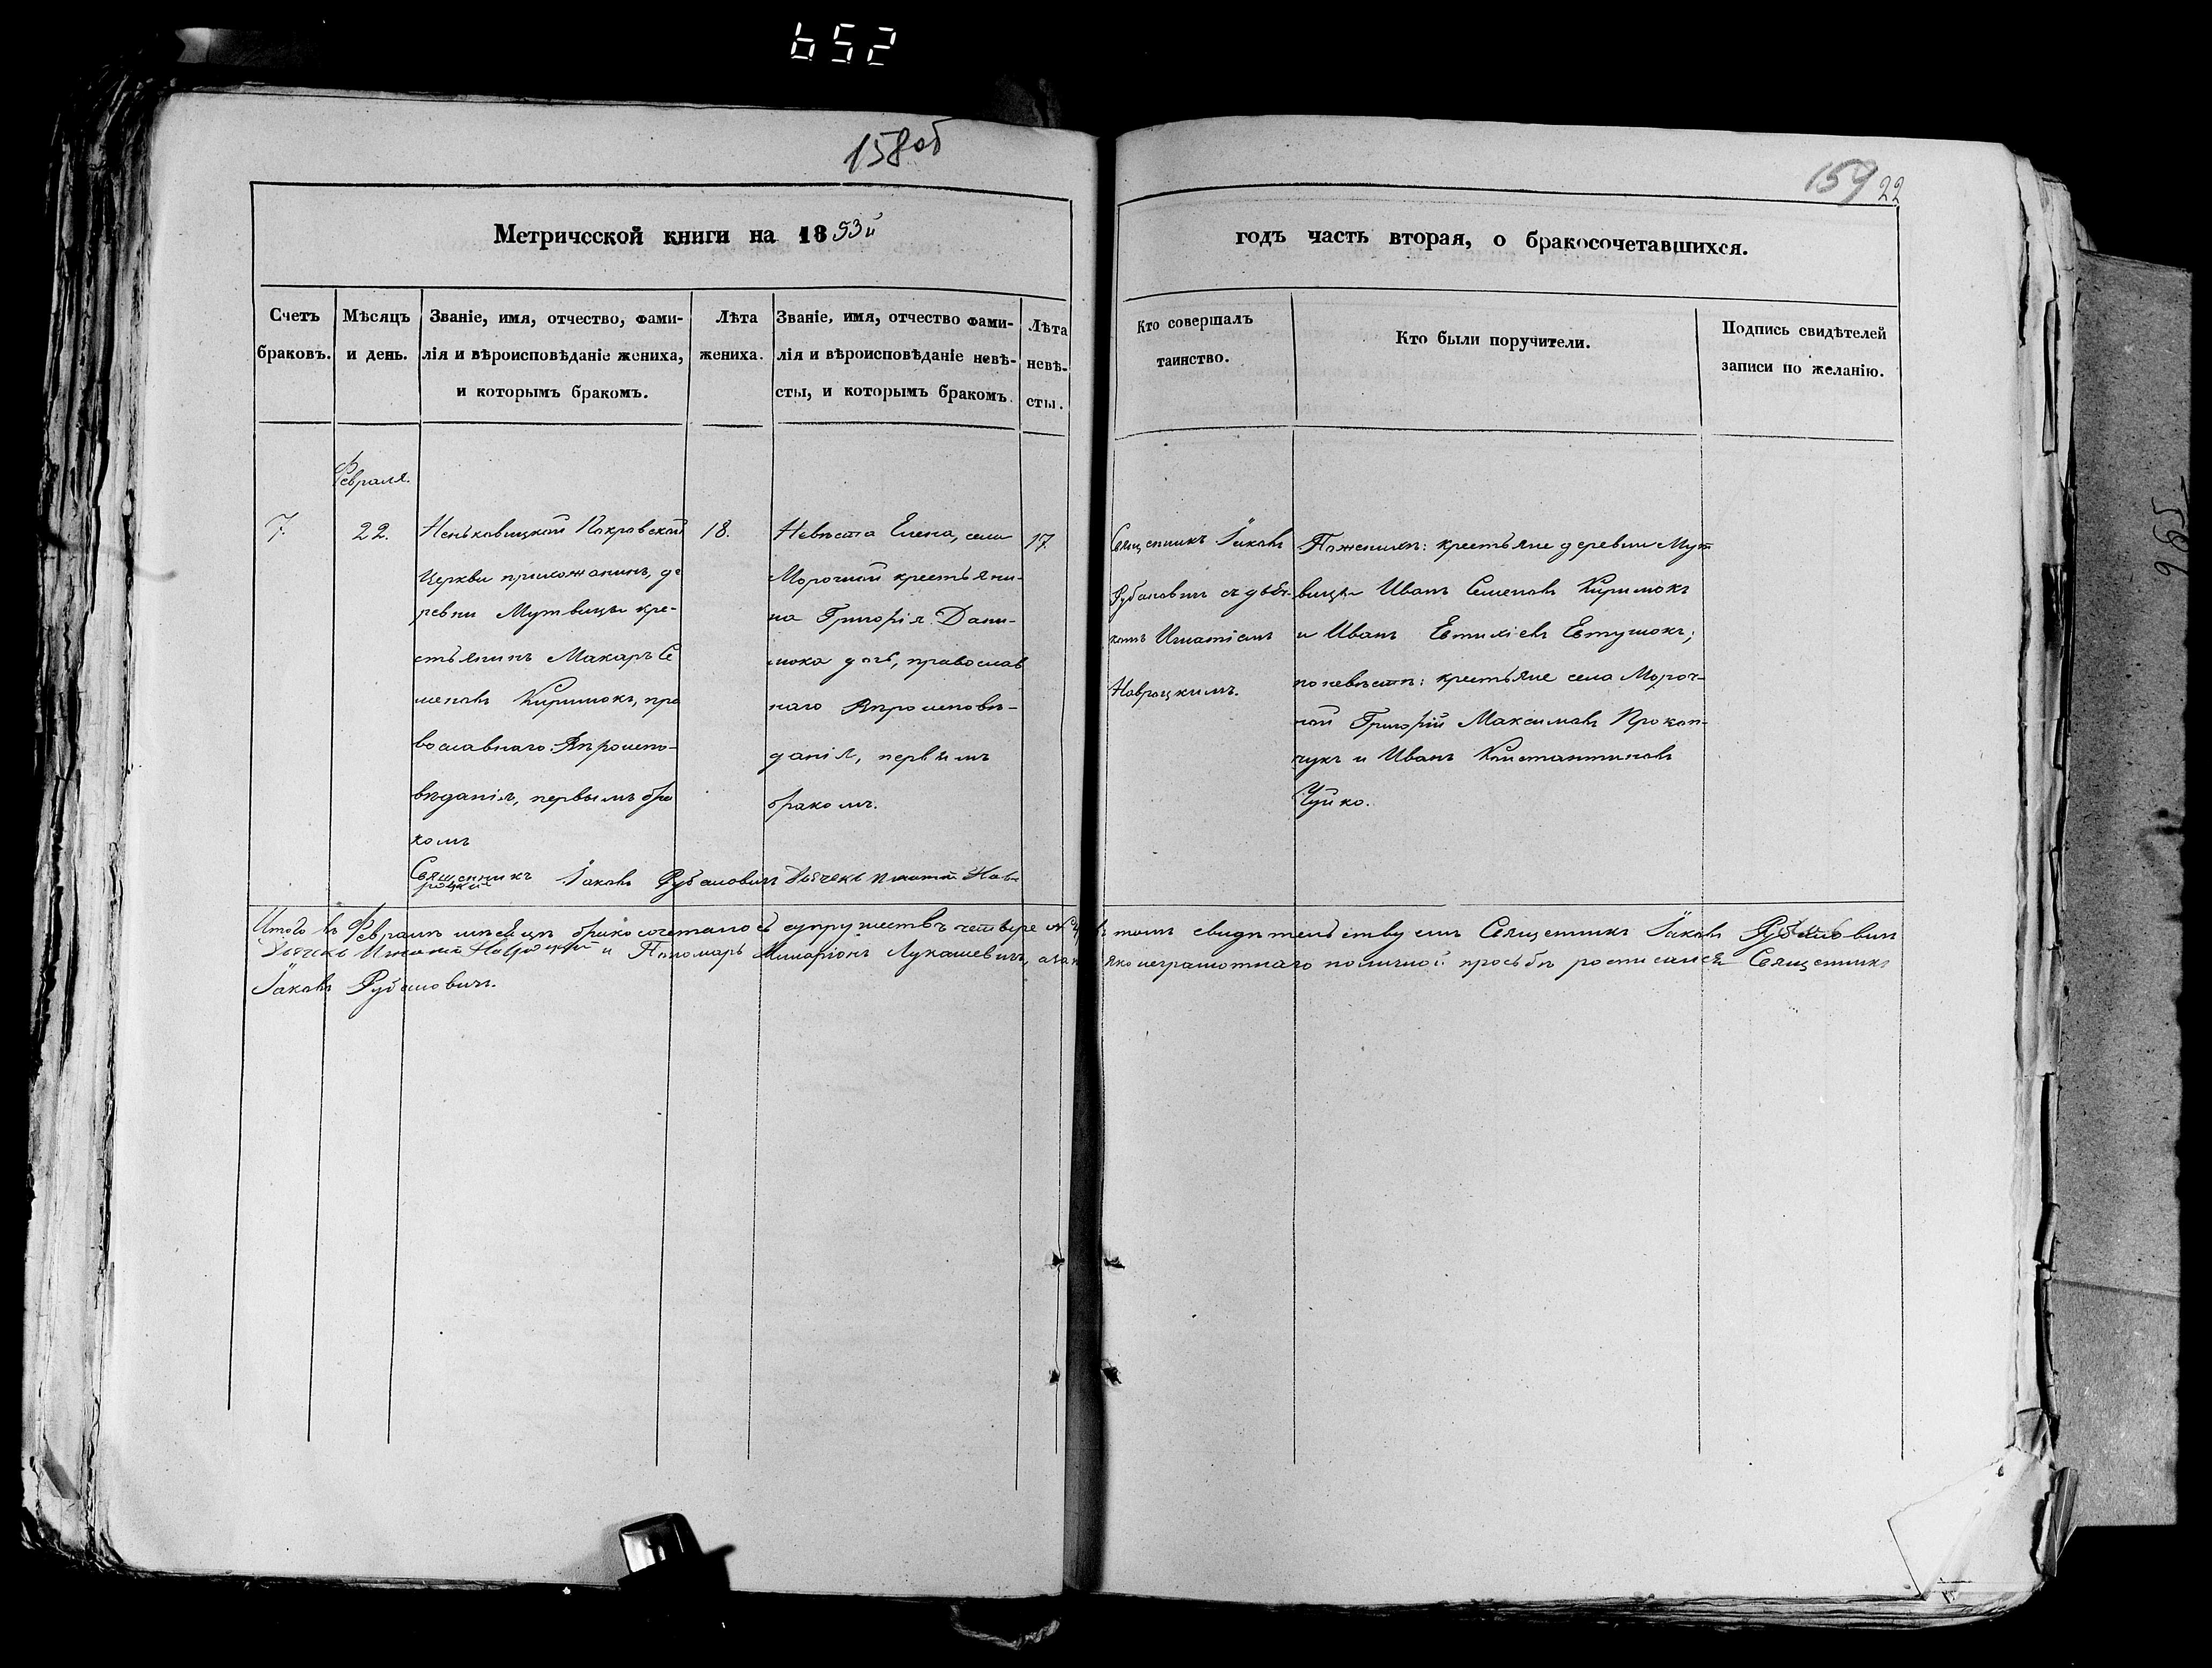 652
158об
159 22
Метрической книги на 1853й
годъ часть вторая, о бракосочетавшихся.
Счетъ браковъ.
Мѣсяцъ и день.
Званіе, имя, отчество, фами-
лія и вѣроисповѣданіе жениха,
и которымъ бракомъ.
Лѣта жениха.
Званіе, имя, отчество фами-
лія и вѣроисповѣданіе невѣ-
сты, и которымъ бракомъ.
Лѣта
невѣ-
сты.
Кто совершалъ
таинство.
Кто были поручители.
Подпись свидѣтелей
записи по желанію.
Февраля.
7.
22.
Неньковицкой Покровской
Церкви прихожанинъ, де
ревни Мутвицы кре-
стьянинъ Макаръ Се
меновъ Киримокъ, пра
вославнаго Вѣроиспо-
вѣданія, первымъ бра
комъ
18.
Невѣста Елена, села
Морочной крестьяни-
на Григорія Дани-
мока дочь, православ
наго Вѣроисповѣ-
данія, первымъ
бракомъ.
17.
Священникъ Іаковъ
Рубановичъ съ дьяч-
комъ Игнатіемъ
Навроцкимъ.
По женихѣ: крестьяне деревни Мут
вицы Иванъ Семеновъ Киримокъ
и Иванъ Евтихіевъ Евтушокъ;
по невѣстѣ: крестьяне села Мороч-
ной Григорій Максимовъ Прокоп-
чукъ и Иванъ Константиновъ
Чуйко.
Священникъ Іаковъ Рубановичъ Дьячекъ Игнатій Нав-
роцкій
Итого въ Февралѣ мѣсяцѣ бракосочеталось супружествъ четыре въ томъ свидѣтельствуемъ Священникъ Іаковъ Рубановичъ
Дьячекъ Игнатій Навроцкій и Пономарь Иларіонъ Лукашевичъ, а за него яко неграмотнаго по личной просьбѣ росписался Священникъ
Іаковъ Рубановичъ.